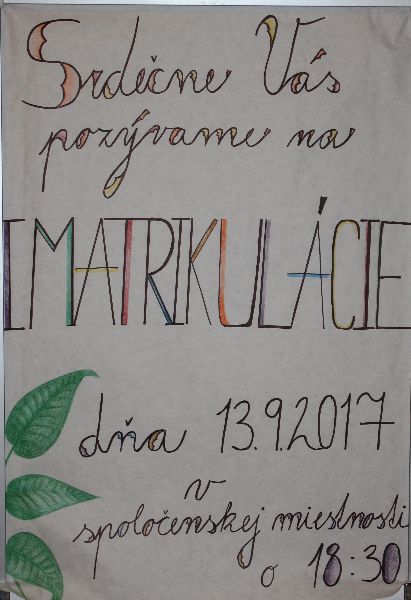 Srdečne Vás
pozývame na
IMATRIKULÁCIE
dňa 13.9.2017
v
spoločenskej miestnosti
o 18:30